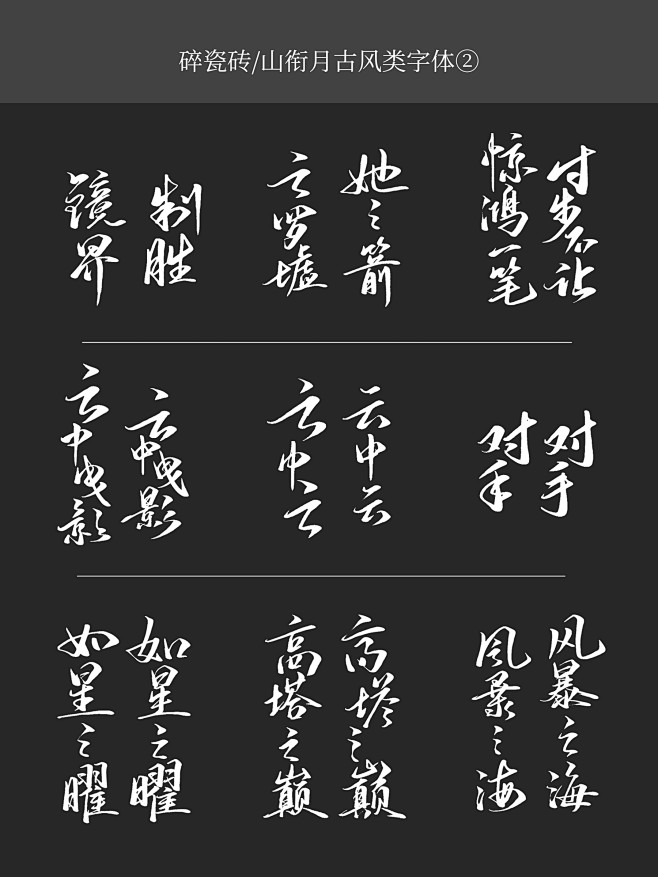 碎瓷砖/山衔月古风类字体②
镜界
制胜
云罗墟
她之箭
惊鸿一笔
寸步不让
云中曳影
云中曳影
云中云
云中云
对手
对手
如星之曜
如星之曜
高塔之巅
高塔之巅
风暴之海
风暴之海